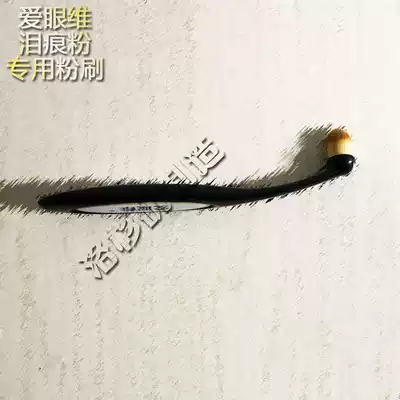 爱眼维
泪痕粉
专用粉刷
洛杉矶制造